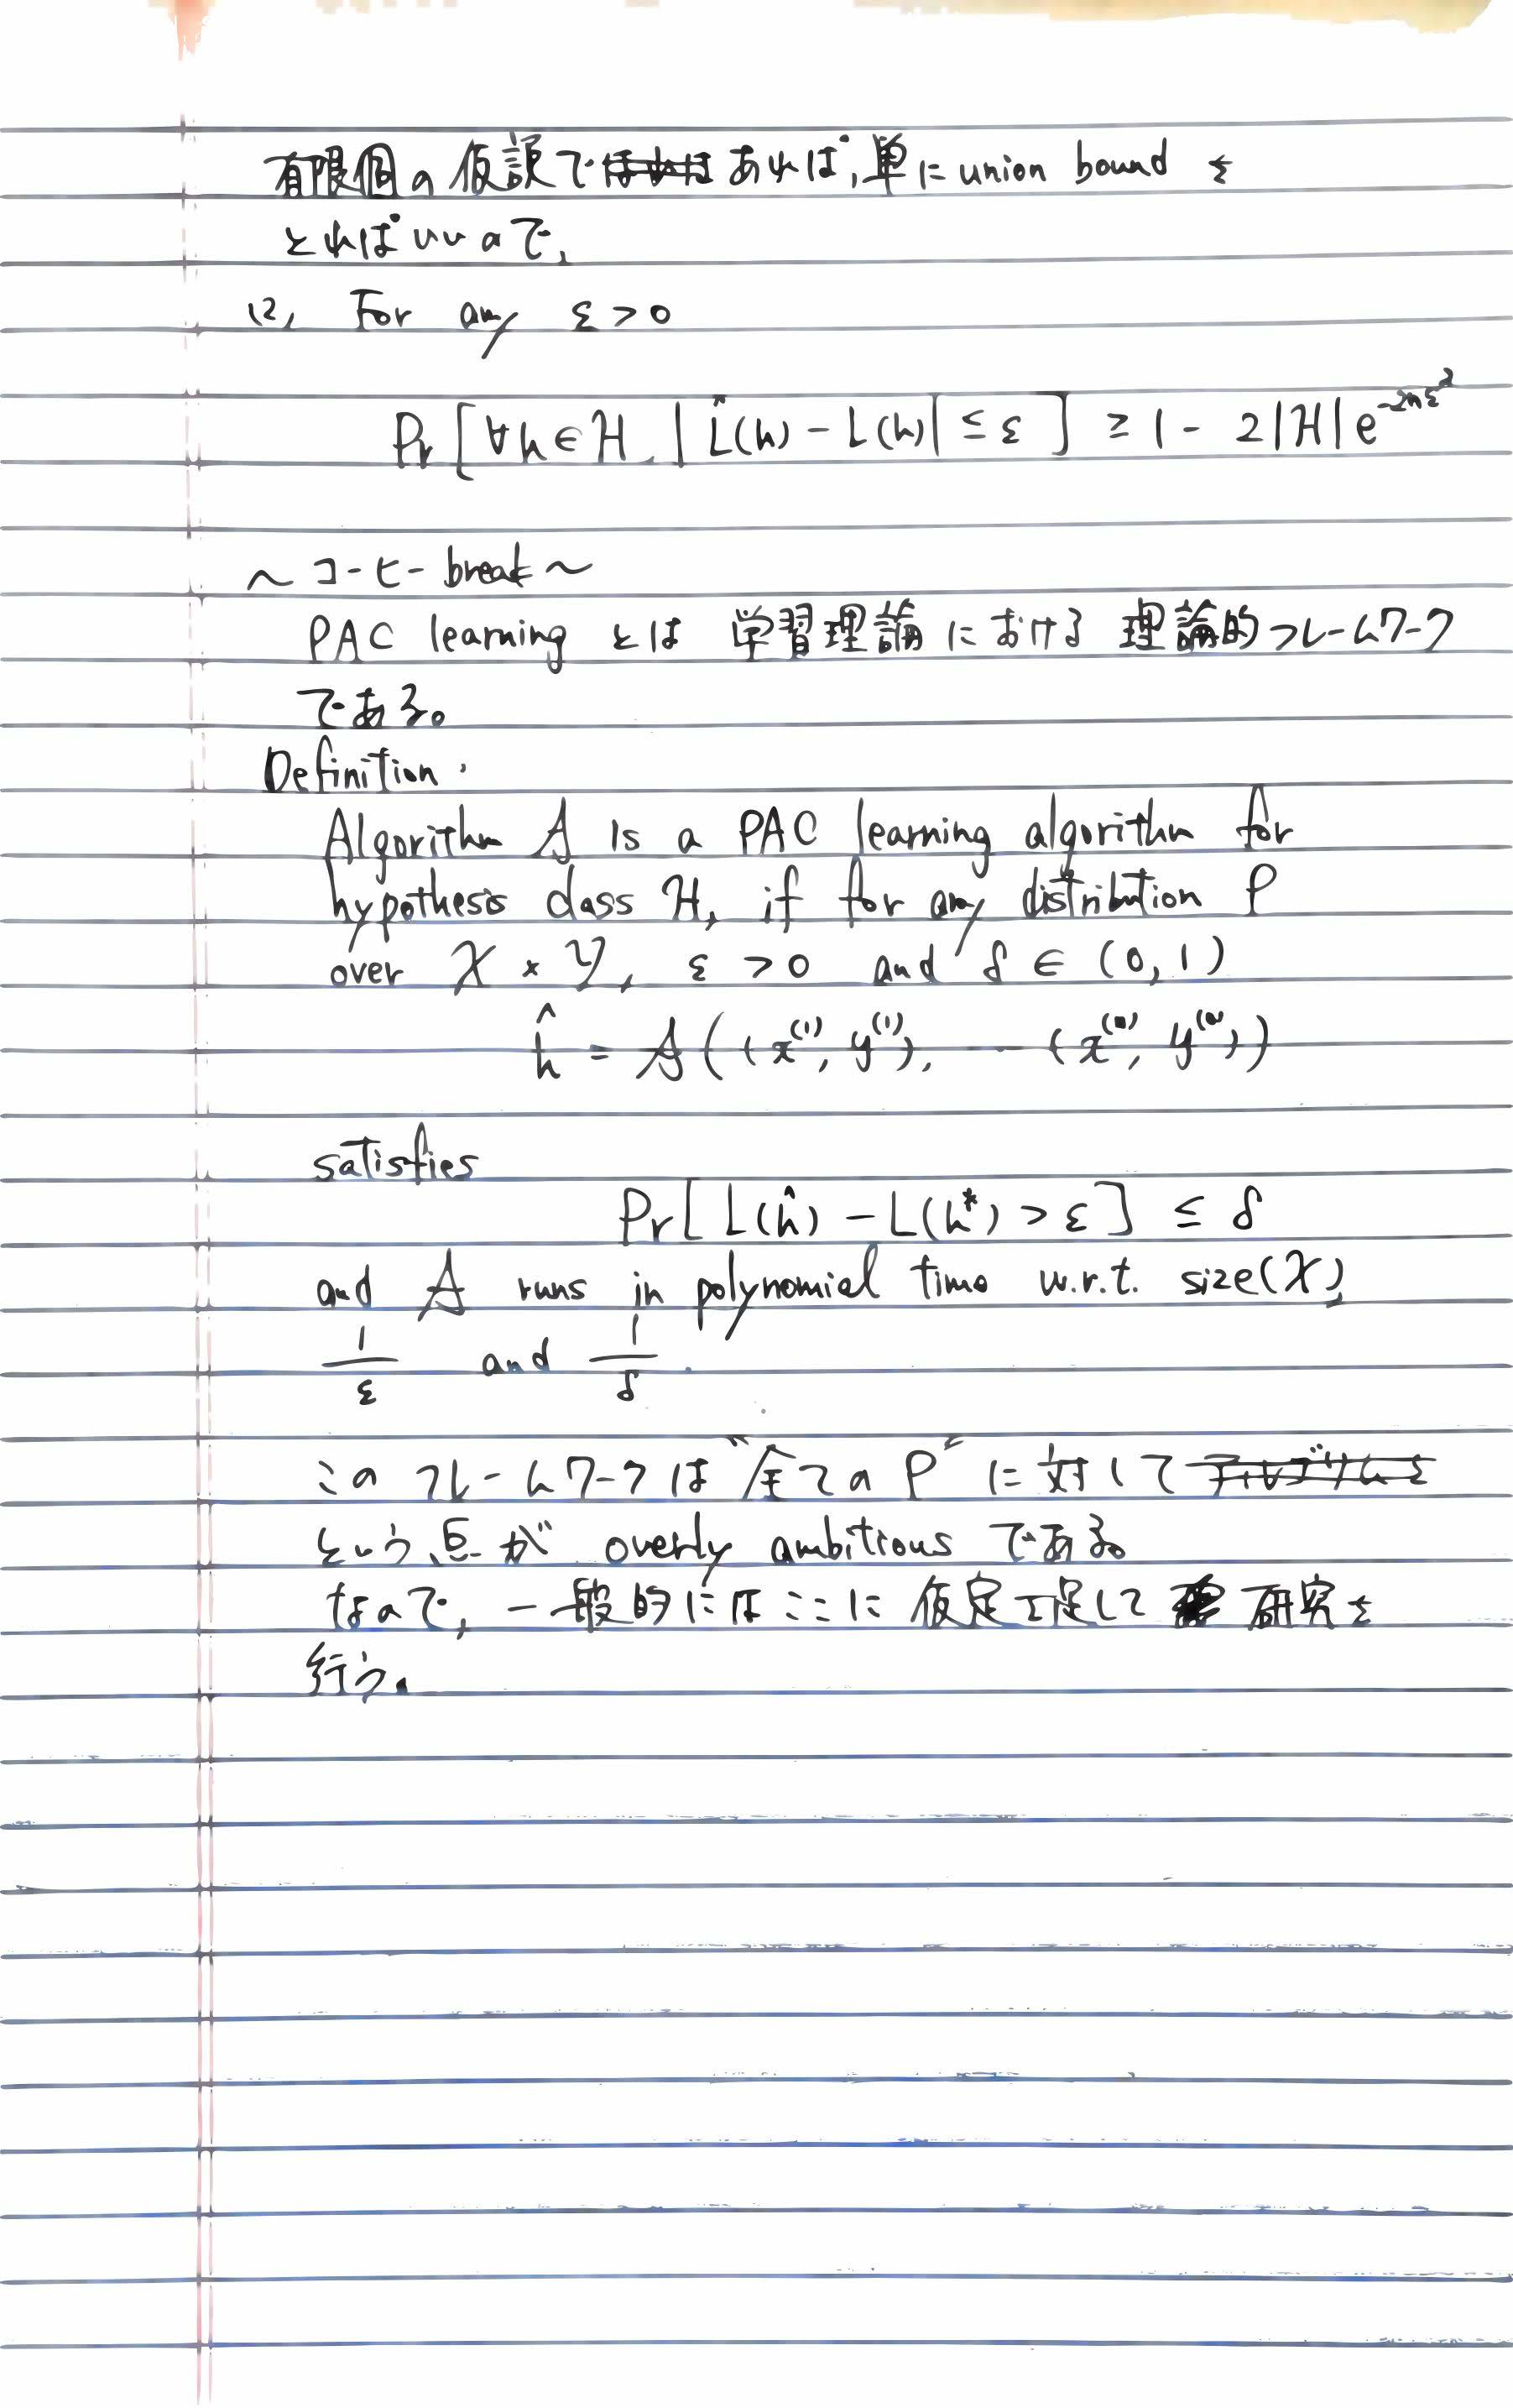 有限個の仮説であれば,単にunion boundを
とればいいので,
(2) For any ε>0
Pr[∀h∈H, |L̂(h) - L(h)| ≤ ε] ≥ 1 - 2|H|e^{-2nε²}
〜コーヒーbreak〜
PAC learning とは 学習理論における 理論的フレームワーク
である。
Definition.
Algorithm A is a PAC learning algorithm for
hypothesis class H, if for any distribution P
over X × Y, ε > 0 and δ ∈ (0,1)
ĥ = A((x^{(1)}, y^{(1)}), … (x^{(n)}, y^{(n)}))
satisfies
Pr[L(ĥ) - L(h*) > ε] ≤ δ
and A runs in polynomial time w.r.t. size(X),
1/ε and 1/δ.
このフレームワークは"全てのP"に対して
という点が overly ambitious である。
なので,一般的にはここに仮定を足して 研究を
行う.